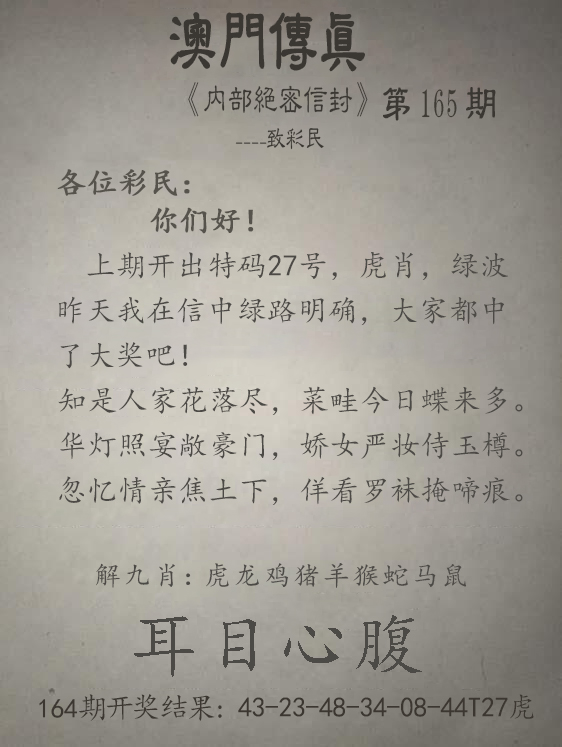 澳門傳眞
《内部絕密信封》第165期
----致彩民
各位彩民：
你们好！
上期开出特码27号，虎肖，绿波
昨天我在信中绿路明确，大家都中
了大奖吧！
知是人家花落尽，菜畦今日蝶来多。
华灯照宴敞豪门，娇女严妆侍玉樽。
忽忆情亲焦土下，佯看罗袜掩啼痕。
解九肖：虎龙鸡猪羊猴蛇马鼠
耳目心腹
164期开奖结果：43-23-48-34-08-44T27虎